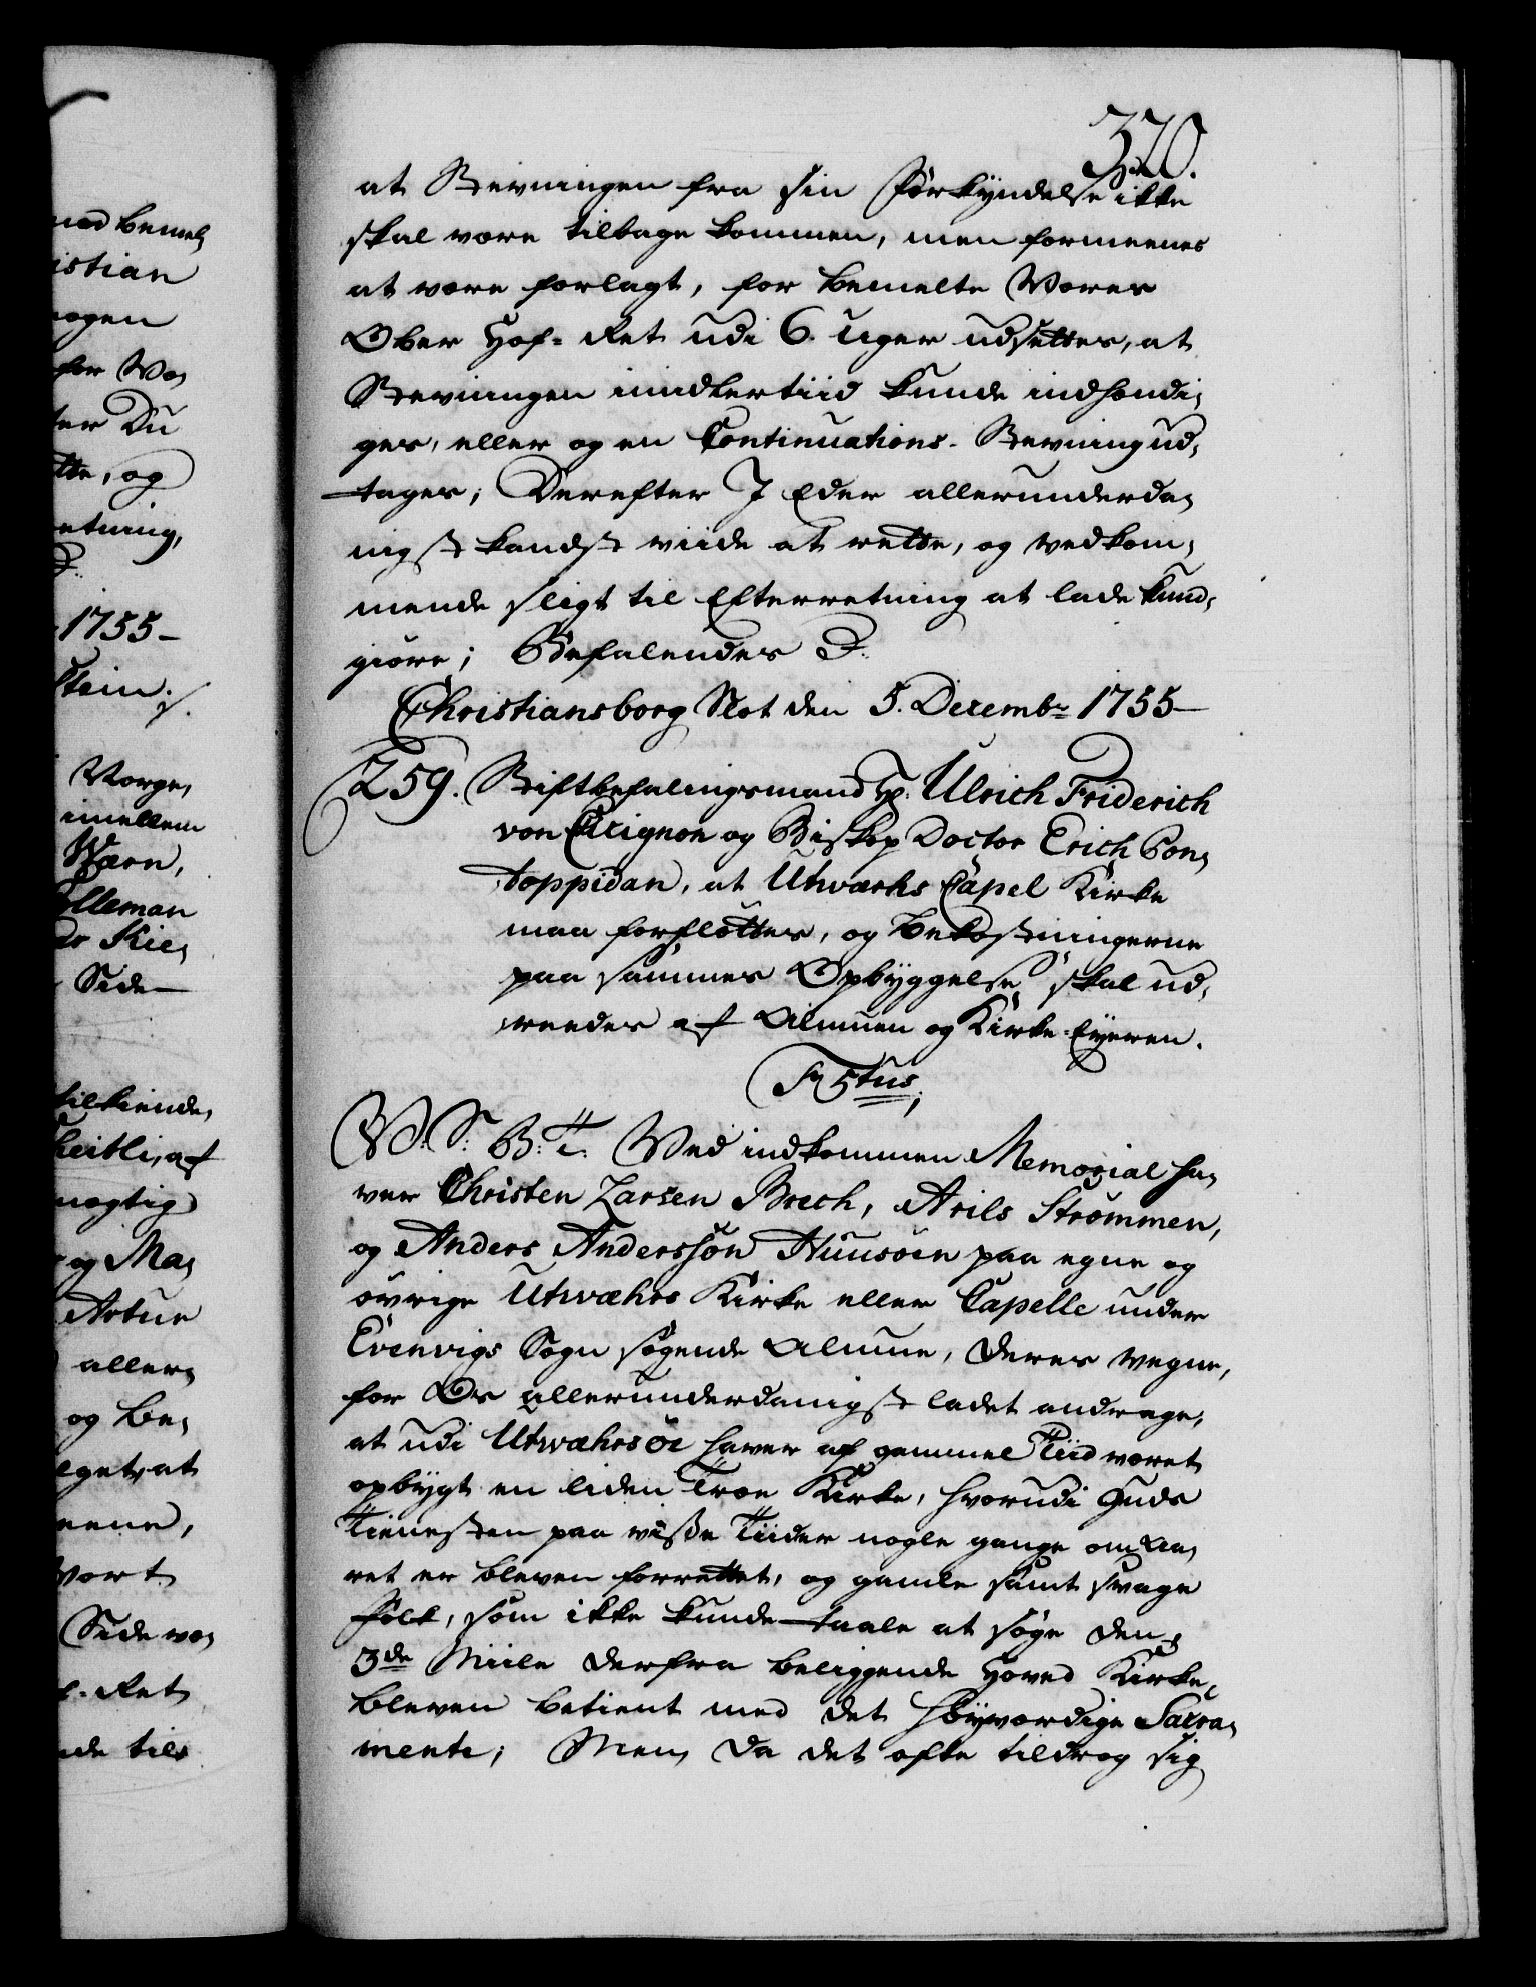 320.
at Stevningen fra sin Forkyndelse ikke
skal være tilbage kommen, men formeenes
at være forlagt, for bemelte Vores
Ober Hof-Ret udi 6. Uger udsettes, at
Stevningen imidlertiid kunde indhændi,
ges, eller og en Continuations-Stevning ud,
tages; Derefter I Eder allerunderda,
nigst kandst viide at rette, og vedkom,
mende sligt til Efterretning at lade kund,
giøre; Befalendes D.
Christiansborg Slot den 5. Decembr 1755
259. Stiftbefalingsmand Hr. Ulrich Friderich
von Cicignon og Biskop Doctor Erich Pon,
toppidan, at Utværhs Capel Kirke
maa forfløttes, og bekostningerne
paa sammes Opbyggelse skal ud,
reedes af Almuen og Kirke-Eyeren.
F 5tus,
V. S. G. T. Ved indkommen Memorial ha,
ver Christen Larsen Brech, Arils Strømmen,
og Anders Andersson Huusøen paa egne og
øvrige Utwæhrs Kirke eller Capelle under
Evenvigs Sogn søgende Almue, deres vegne,
for Os allerunderdanigst ladet andrage,
at udi Utwæhrsöe haver af gammel Tiid været
opbygt en liden Træe Kirke, hvorudi Guds
Tienesten paa visse Tiider nogle gange om Aa,
ret er bleven forrettet, og gamle samt svage
Folk, som ikke kunde taale at søge den
3de Miile derfra beliggende Hoved Kirke,
bleven betient med det høyværdige Sacra,
mente; Men da det ofte tildrog sig